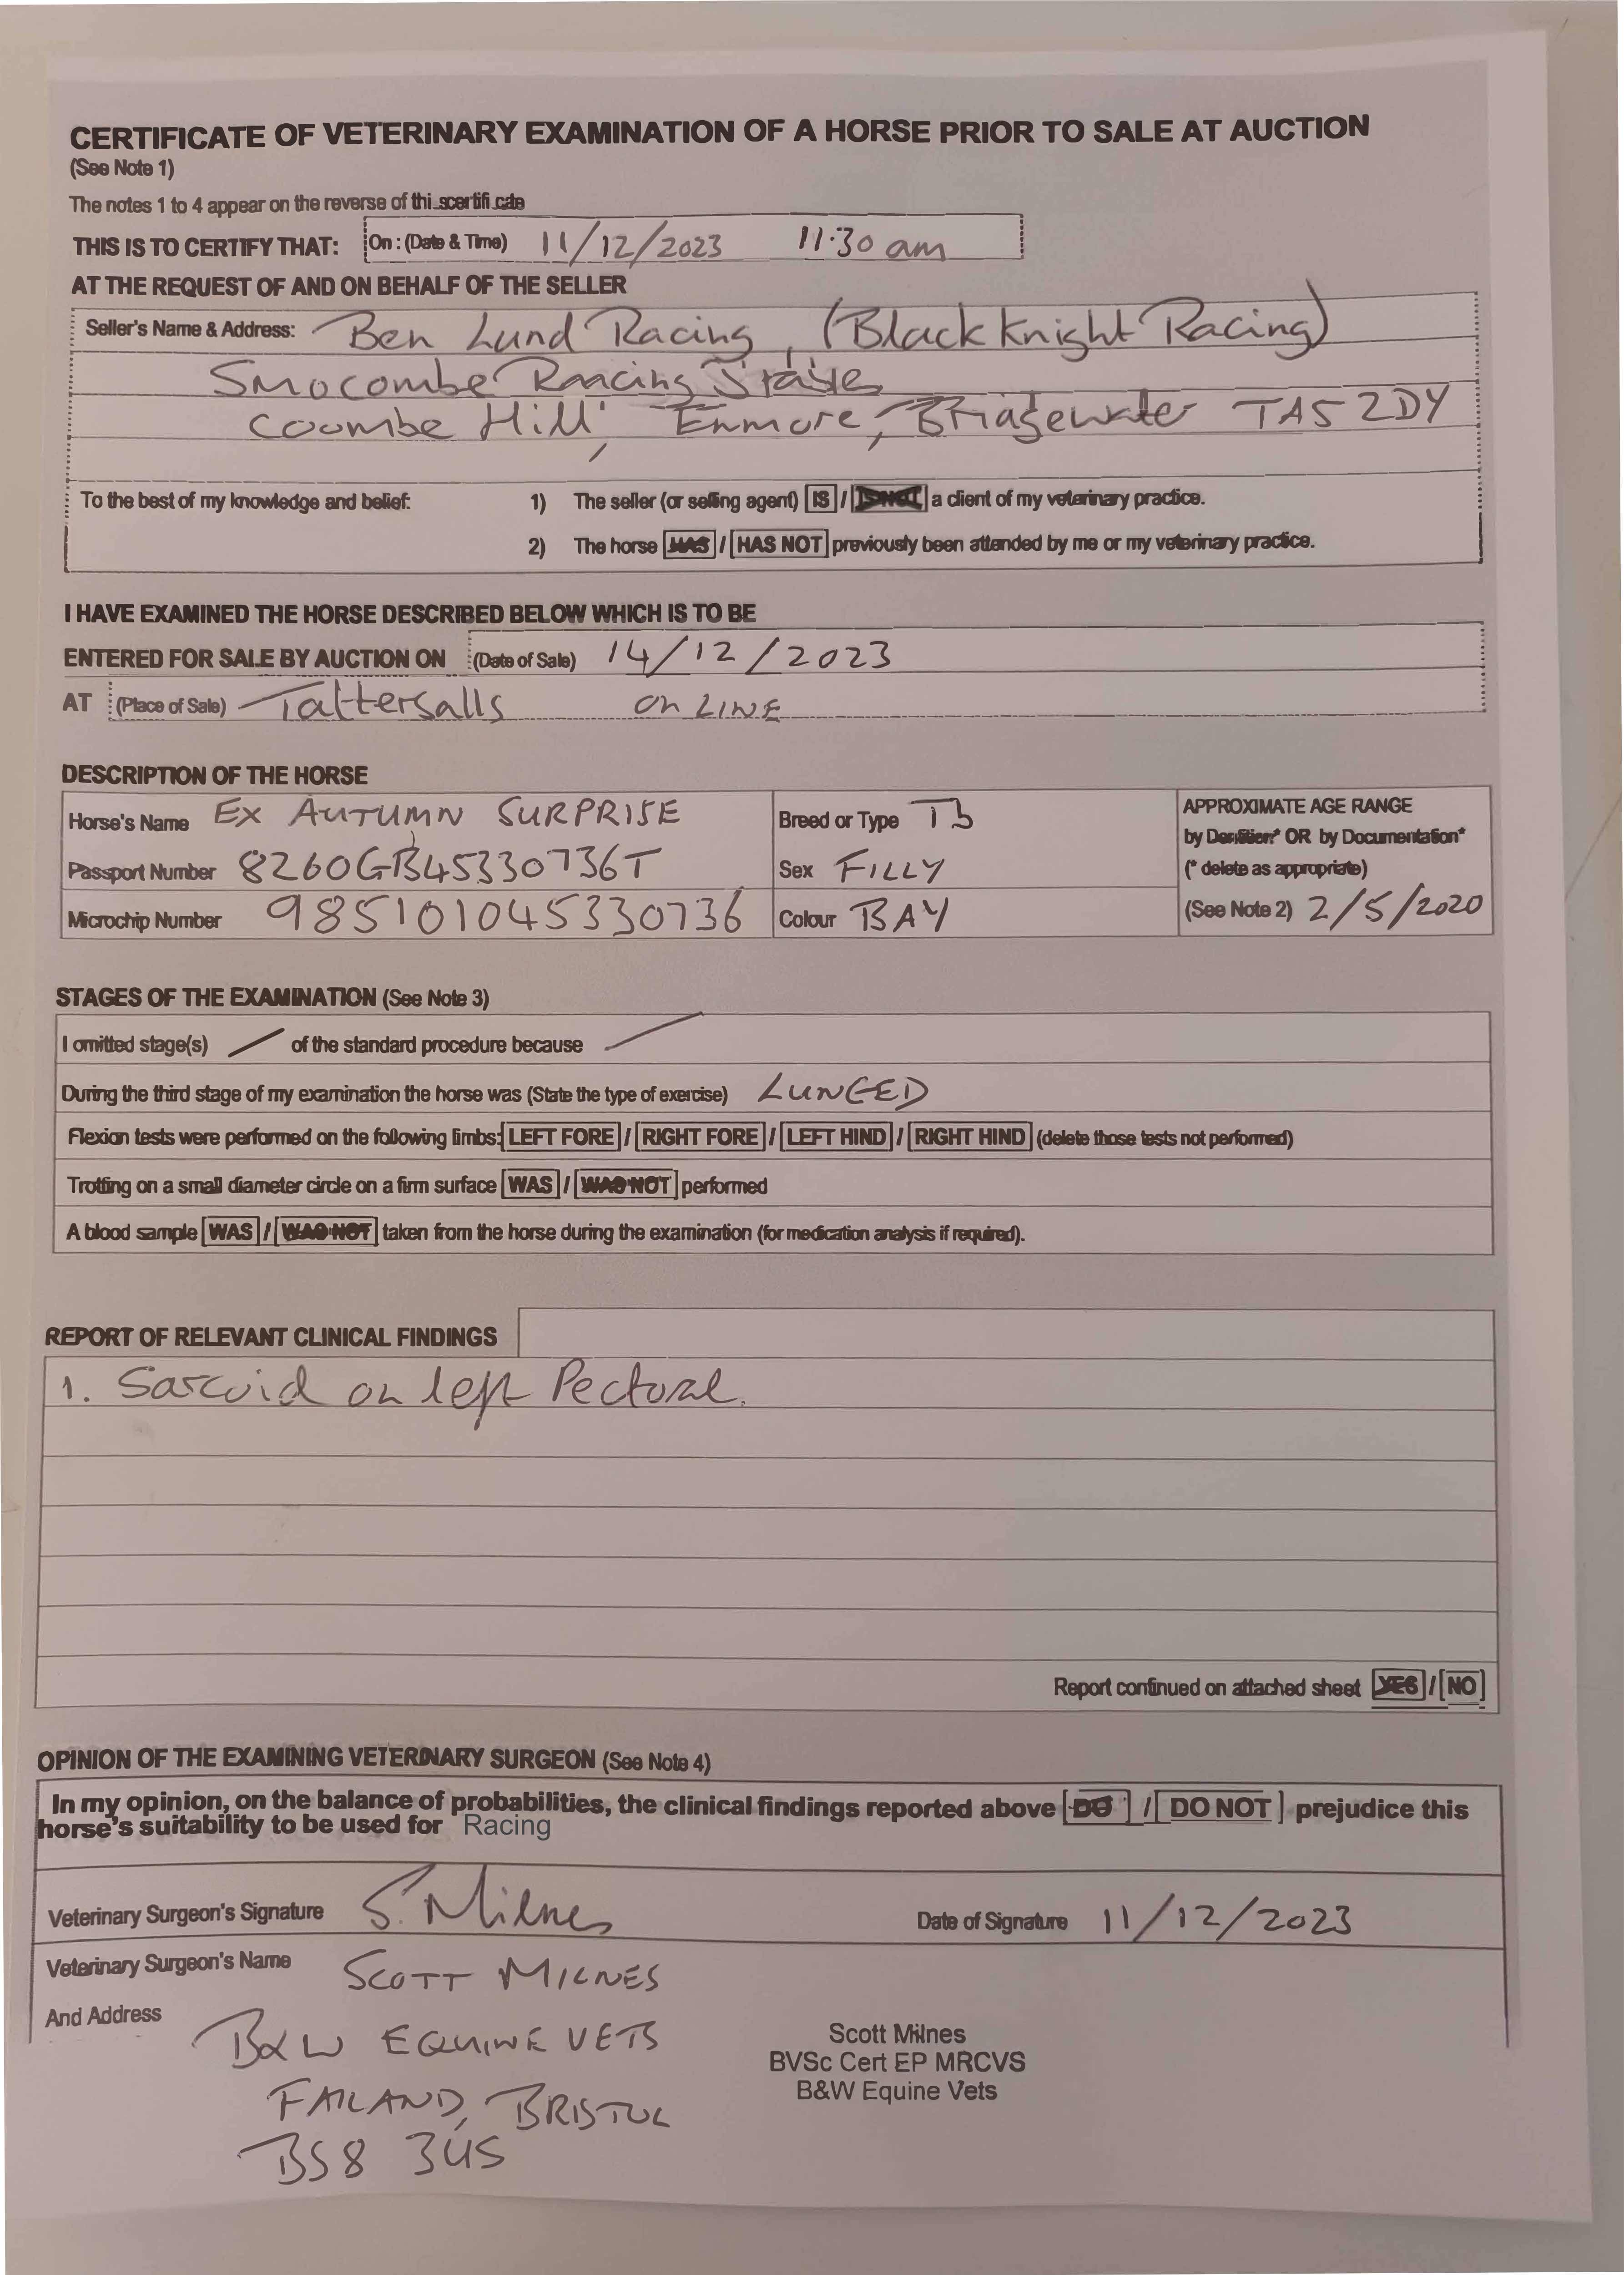 CERTIFICATE OF VETERINARY EXAMINATION OF A HORSE PRIOR TO SALE AT AUCTION
(See Note 1)
The notes 1 to 4 appear on the reverse of thi scertifi cate
THIS IS TO CERTIFY THAT: On : (Date & Time) 11/12/2023 11·30 am
AT THE REQUEST OF AND ON BEHALF OF THE SELLER
Seller's Name & Address: Ben Lund Racing, (Black Knight Racing)
Smocombe Racing Stables
Coombe Hill, Enmore, Bridgewater TA5 2DY
To the best of my knowledge and belief: 1) The seller (or selling agent) IS / IS NOT a client of my veterinary practice.
2) The horse HAS / HAS NOT previously been attended by me or my veterinary practice.
I HAVE EXAMINED THE HORSE DESCRIBED BELOW WHICH IS TO BE
ENTERED FOR SALE BY AUCTION ON (Date of Sale) 14/12/2023
AT (Place of Sale) Tattersalls on LINE
DESCRIPTION OF THE HORSE
Horse's Name EX AUTUMN SURPRISE Breed or Type Tb APPROXIMATE AGE RANGE
by Dentition* OR by Documentation*
Passport Number 8260GB45330736T Sex FILLY (* delete as appropriate)
Microchip Number 985101045330736 Colour BAY (See Note 2) 2/5/2020
STAGES OF THE EXAMINATION (See Note 3)
I omitted stage(s) / of the standard procedure because /
During the third stage of my examination the horse was (State the type of exercise) LUNGED
Flexion tests were performed on the following limbs: LEFT FORE / RIGHT FORE / LEFT HIND / RIGHT HIND (delete those tests not performed)
Trotting on a small diameter circle on a firm surface WAS / WAS NOT performed
A blood sample WAS / WAS NOT taken from the horse during the examination (for medication analysis if required).
REPORT OF RELEVANT CLINICAL FINDINGS
1. Sarcoid on left Pectoral.
Report continued on attached sheet YES / NO
OPINION OF THE EXAMINING VETERINARY SURGEON (See Note 4)
In my opinion, on the balance of probabilities, the clinical findings reported above DO / DO NOT prejudice this
horse's suitability to be used for Racing
Veterinary Surgeon's Signature S. Milnes Date of Signature 11/12/2023
Veterinary Surgeon's Name SCOTT MILNES
And Address
B&W EQUINE VETS
FAILAND, BRISTOL
BS8 3US
Scott Milnes
BVSc Cert EP MRCVS
B&W Equine Vets